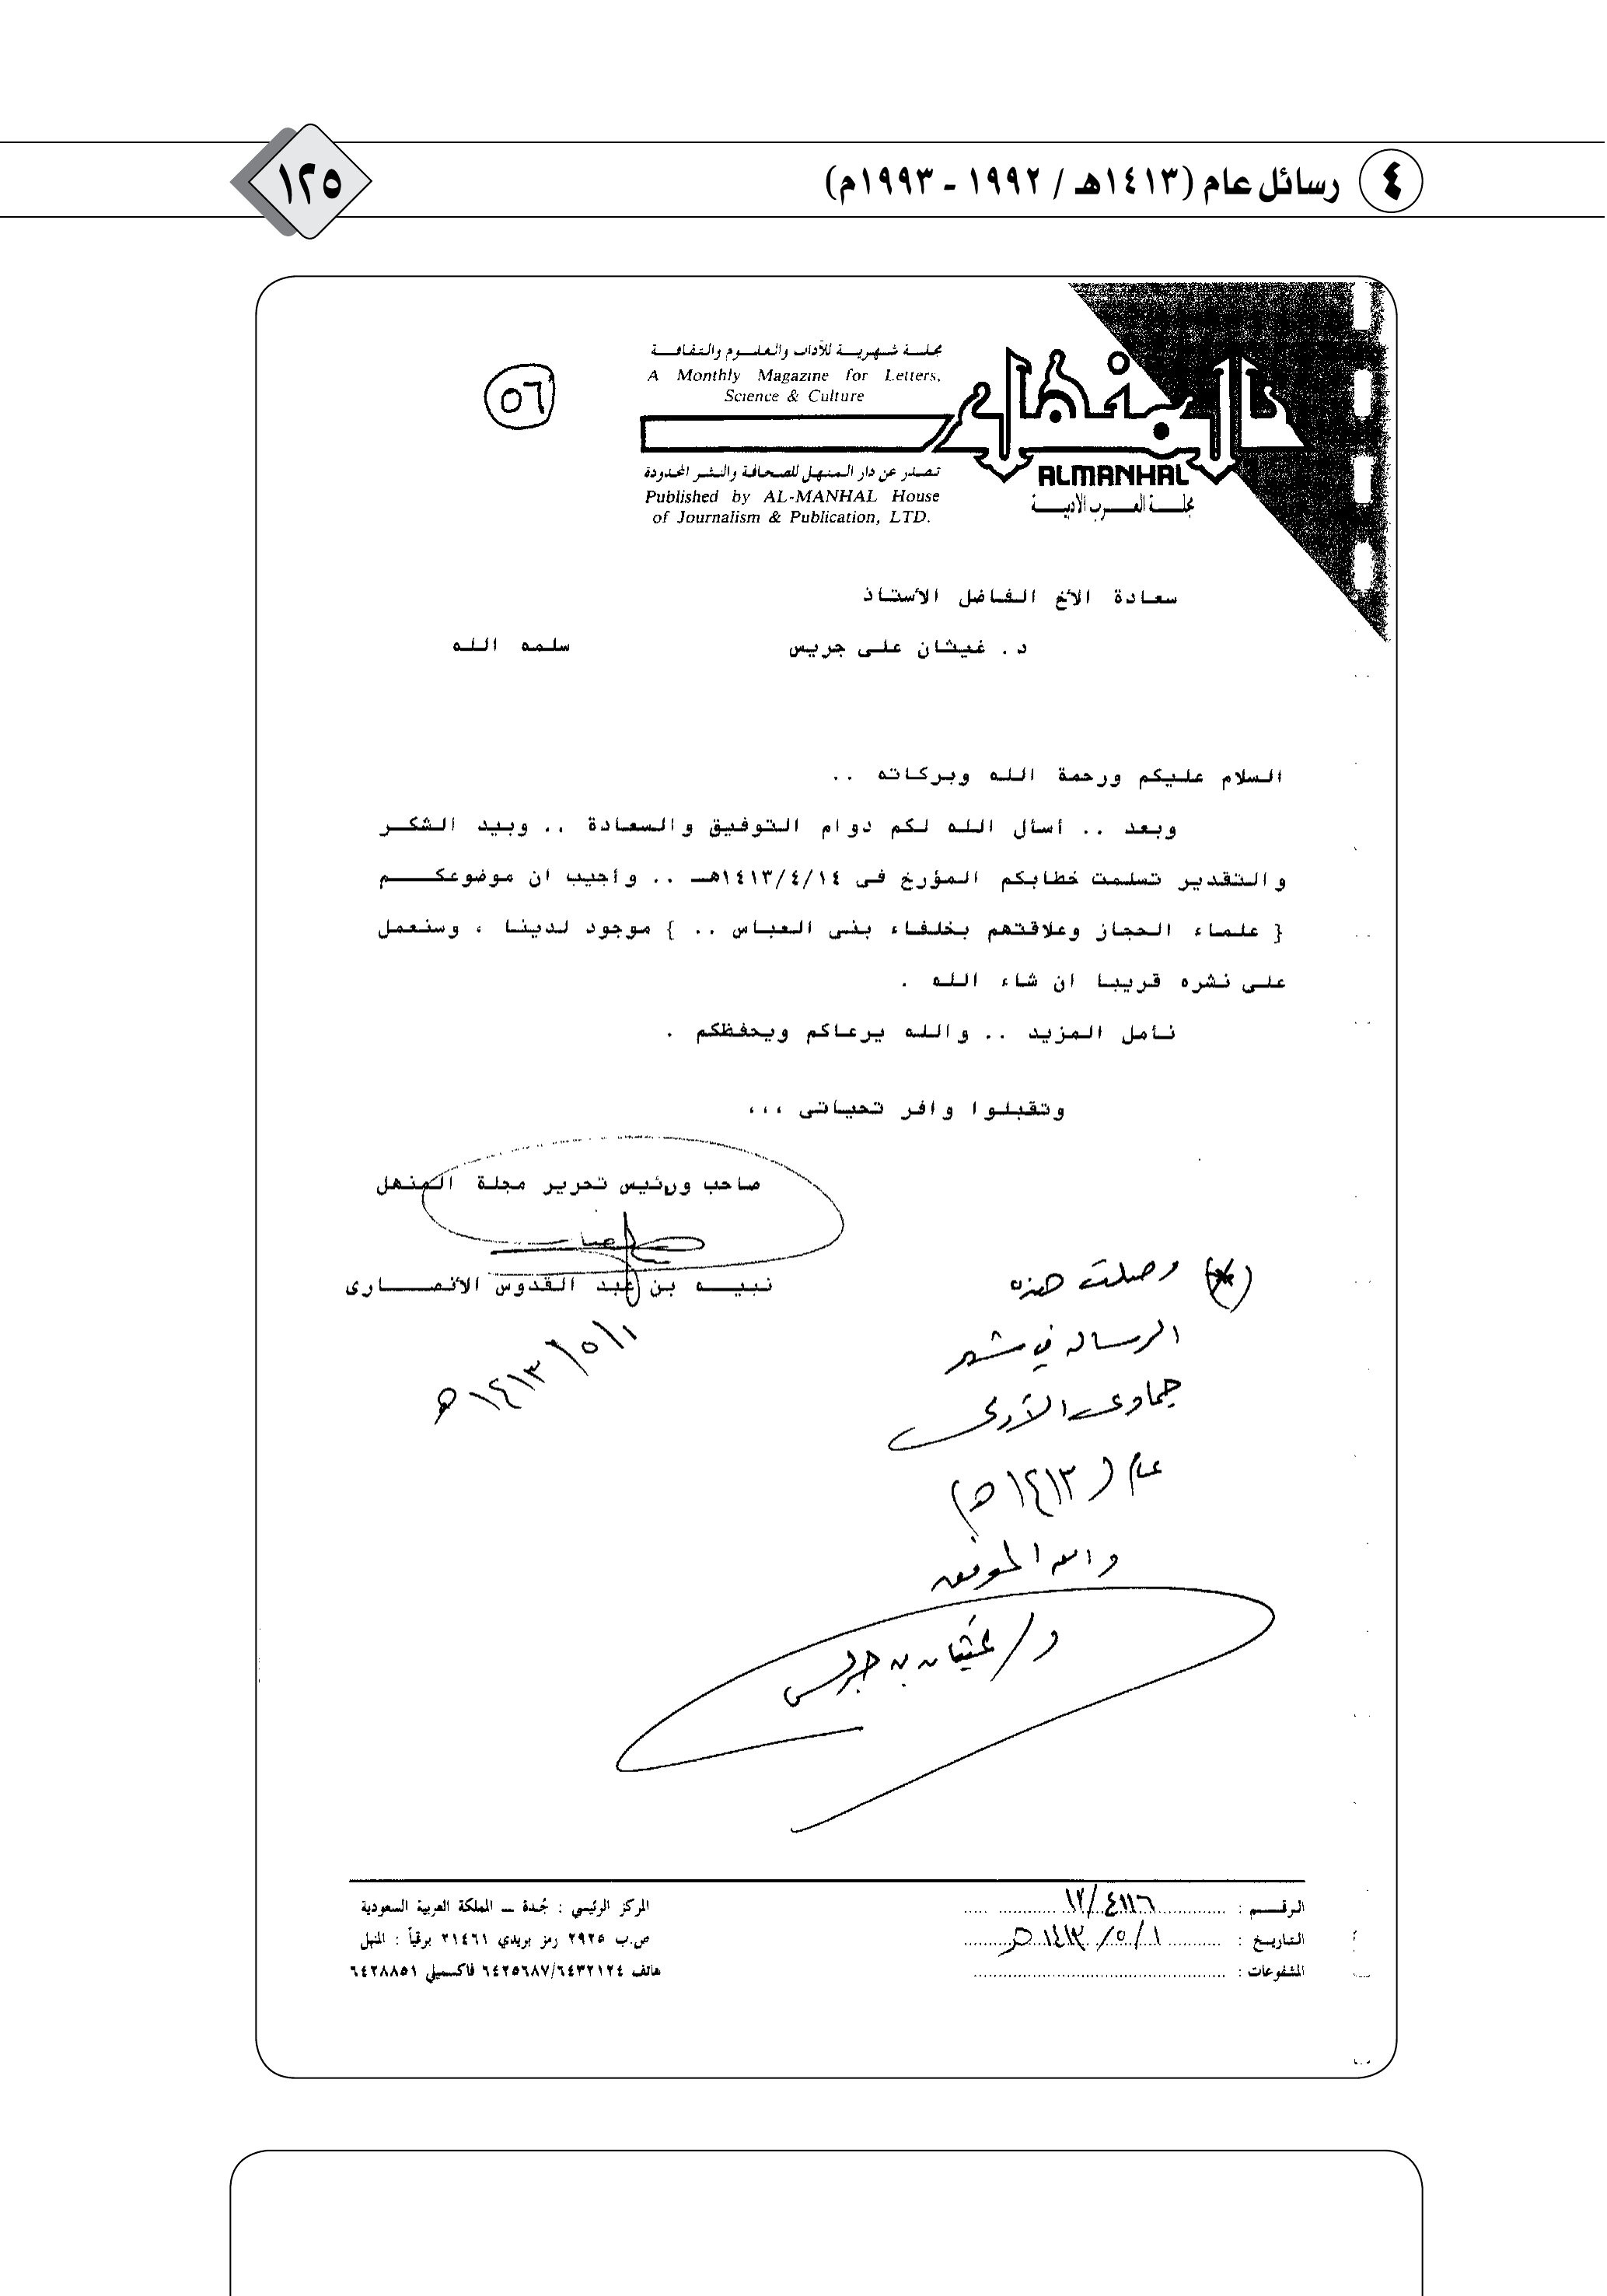 ٤ رسائل عام (١٤١٣هـ / ١٩٩٢ - ١٩٩٣م)
١٢٥
مجلـة شـهريـة للآداب والعلـوم والثقافـة
A Monthly Magazine for Letters,
Science & Culture
٥٦
المنهل
ALMANHAL
مجلـة العـرب الأدبيـة
تصدر عن دار المنهل للصحافة والنشر المحدودة
Published by AL-MANHAL House
of Journalism & Publication, LTD.
سعادة الأخ الفاضل الأستاذ
د. غيثان على جريس سلمه الله
السلام عليكم ورحمة الله وبركاته ..
وبعد .. أسأل الله لكم دوام التوفيق والسعادة .. وبيد الشكـر
والتقدير تسلمت خطابكم المؤرخ فى ١٤١٣/٤/١٤هـ .. وأجيب ان موضوعكـم
{ علماء الحجاز وعلاقتهم بخلفاء بنى العباس .. } موجود لدينا ، وسنعمل
على نشره قريبا ان شاء الله .
نأمل المزيد .. والله يرعاكم ويحفظكم .
وتقبلوا وافر تحياتى ،،،
صاحب ورئيس تحرير مجلة المنهل
نبيـه بن عبد القدوس الأنصـارى
١/٥/١٤١٣هـ
(*) وصلت هذه
الرسالة في شهر
جمادى الأولى
عام (١٤١٣هـ)
والله الموفق
د/ غيثان بن جريس
الرقـم : ١٢/٤١١٦
التاريـخ : ١/٥/١٤١٣هـ
المشفوعات :
المركز الرئيسي : جُدة ــ المملكة العربية السعودية
ص.ب ٢٩٢٥ رمز بريدي ٢١٤٦١ برقياً : المنهل
هاتف ٦٤٢٥٦٨٧/٦٤٣٢١٢٤ فاكسميلي ٦٤٢٨٨٥١